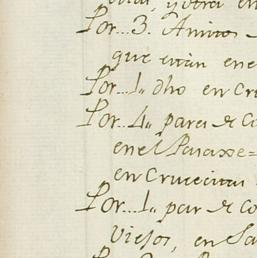 y otra en
Por...3. Anitos
que están en e
Por...1. dho en Cru
Por...4. pares de Co
en el Paraxe=
en Crucecitas
Por...1. par de Co
Viejos, en Sa